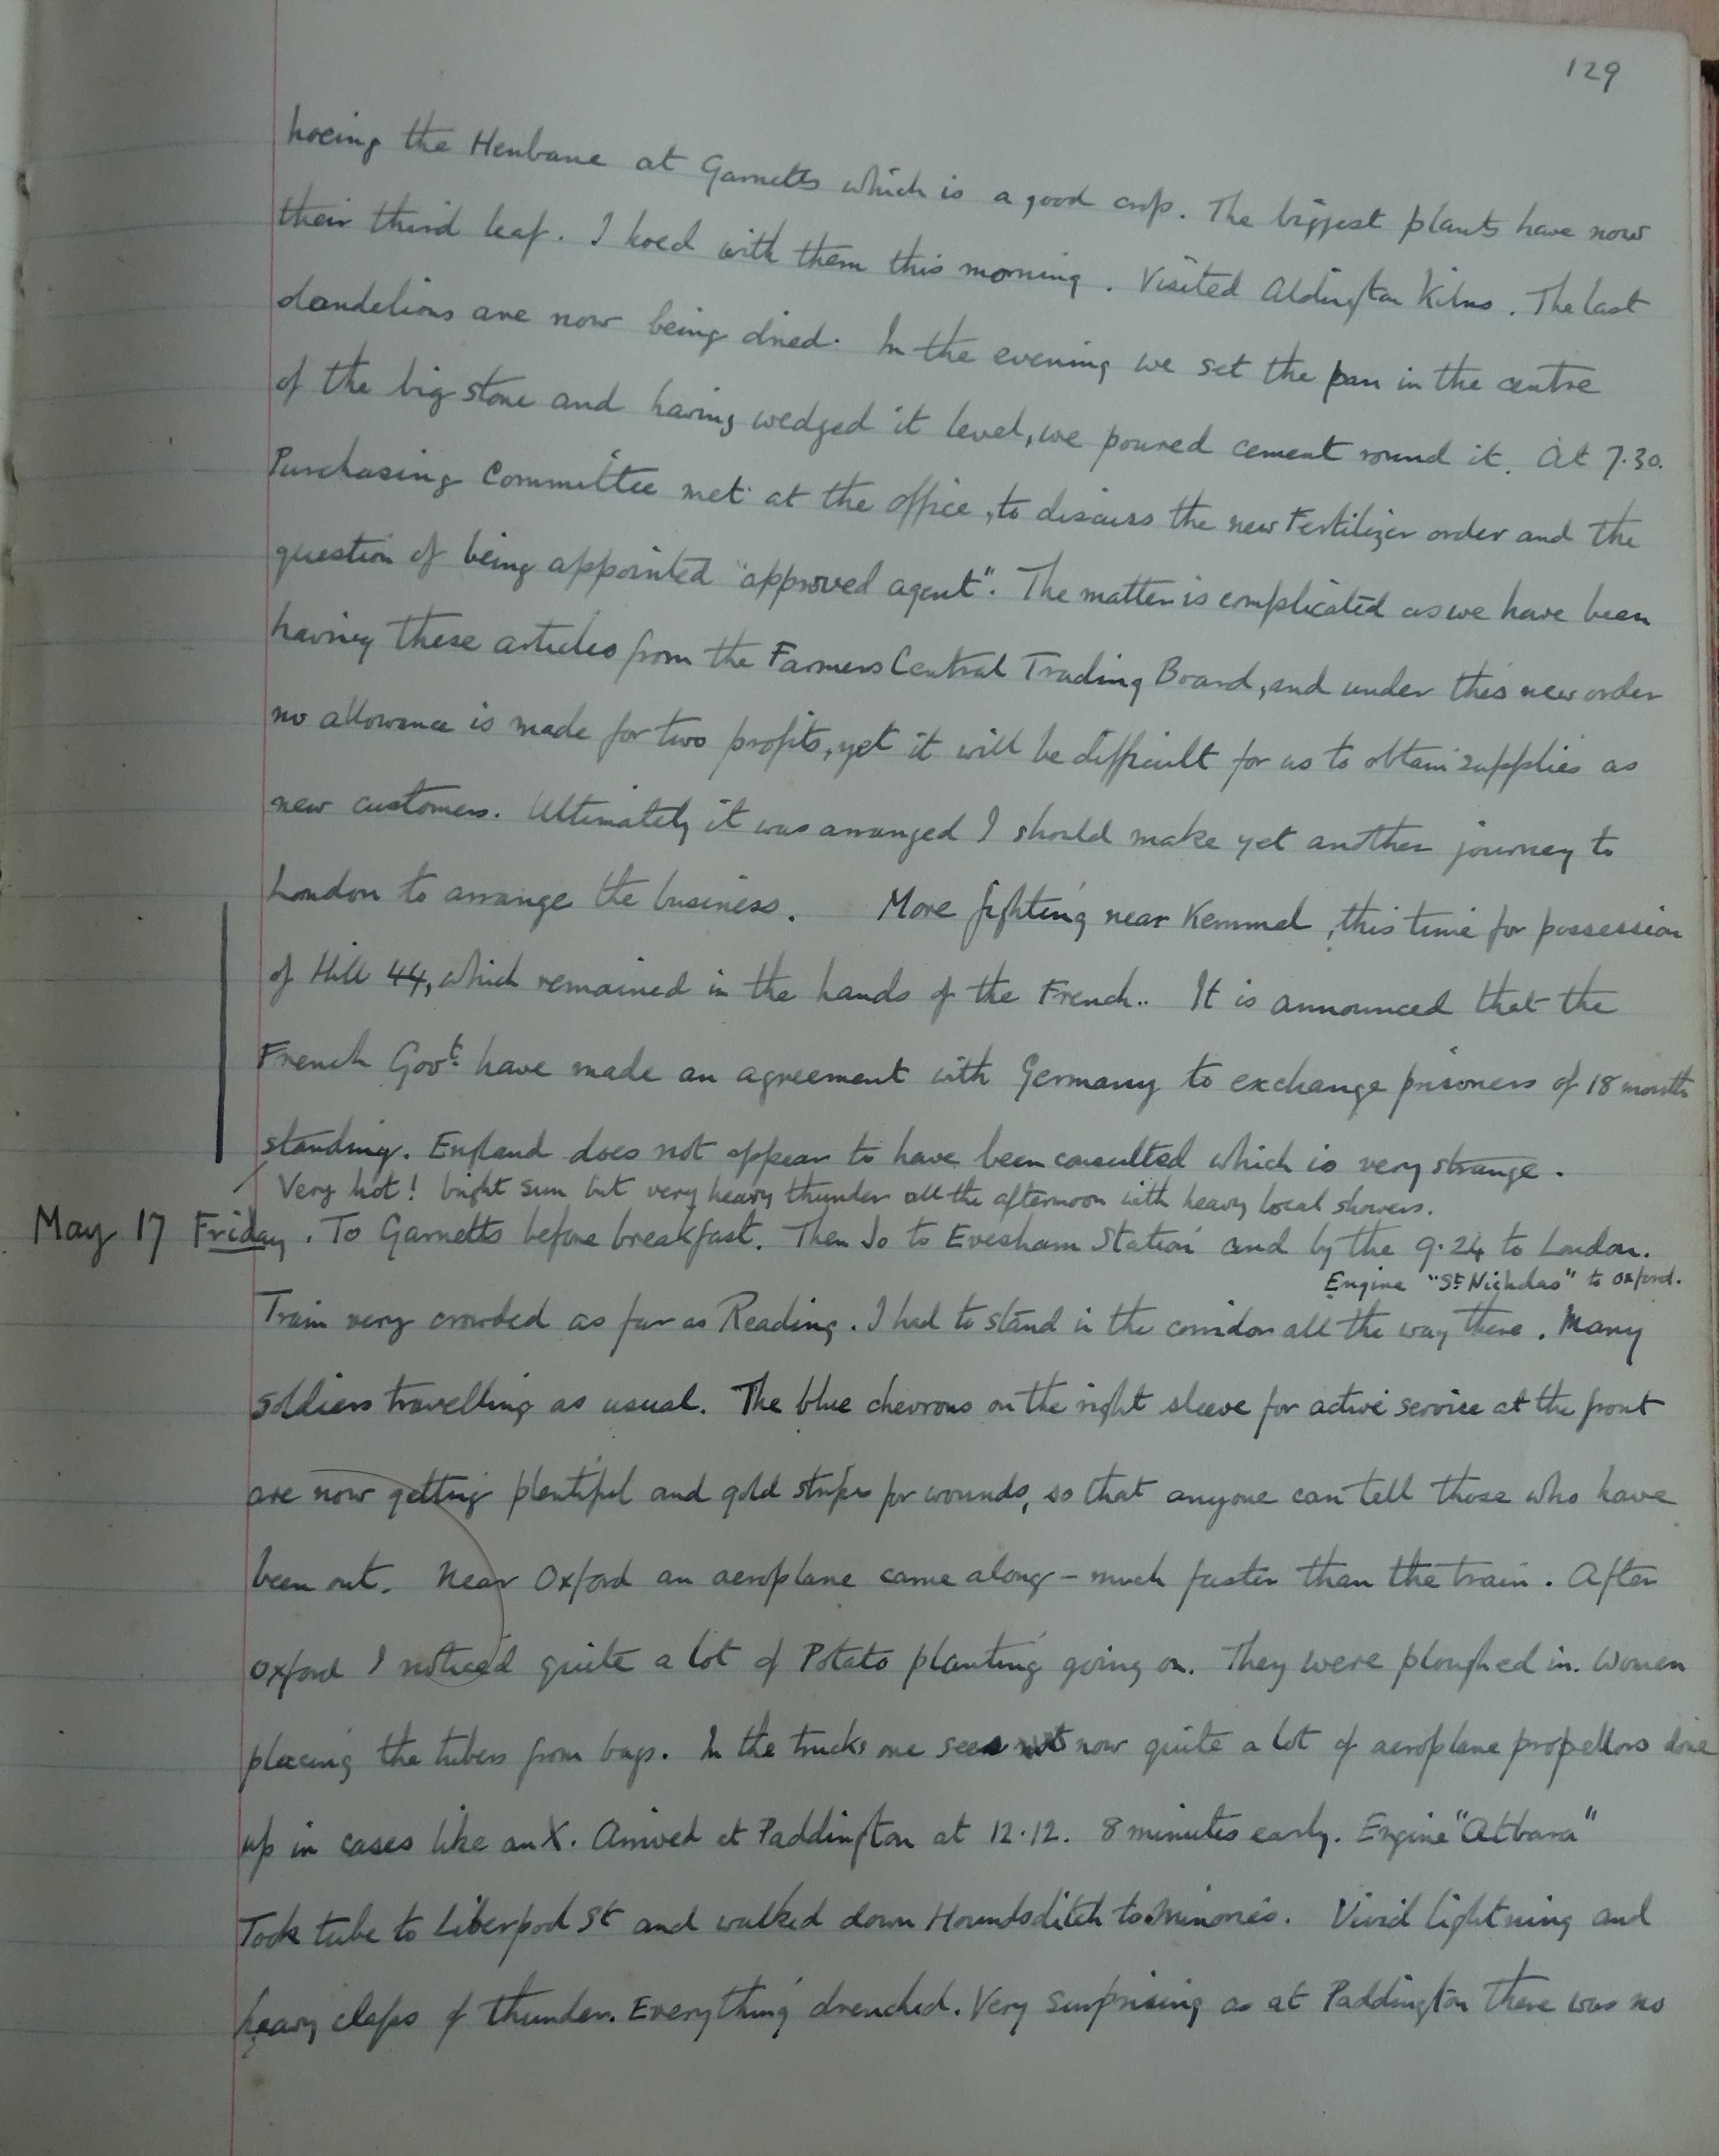 129
hoeing the Henbane at Garnetts which is a good crop. The biggest plants have now
their third leaf. I hoed with them this morning. Visited Aldington Kilns. The last
dandelions are now being dried. In the evening we set the pan in the centre
of the big stone and having wedged it level, we poured cement round it. At 7.30.
Purchasing Committee met at the office, to discuss the new Fertilizer order and the
question of being appointed "approved agent". The matter is complicated as we have been
having these articles from the Farmers Central Trading Board, and under this new order
no allowance is made for two profits, yet it will be difficult for us to obtain supplies as
new customers. Ultimately it was arranged I should make yet another journey to
London to arrange the business. More fighting near Kemmel, this time for possession
of Hill 44, which remained in the hands of the French.. It is announced that the
French Govt. have made an agreement with Germany to exchange prisoners of 18 months
standing. England does not appear to have been consulted which is very strange.
Very hot! bright sun but very heavy thunder all the afternoon with heavy local showers.
May 17 Friday. To Garnetts before breakfast. Then Jo to Evesham Station and by the 9.24 to London.
Engine "St Nicholas" to Oxford.
Train very crowded as far as Reading. I had to stand in the corridor all the way there. Many
soldiers travelling as usual. The blue chevrons on the right sleeve for active service at the front
are now getting plentiful and gold stripes for wounds, so that anyone can tell those who have
been out. Near Oxford an aeroplane came along - much faster than the train. After
Oxford I noticed quite a lot of Potato planting going on. They were ploughed in. Women
placing the tubers from bags. In the trucks one sees now quite a lot of aeroplane propellors done
up in cases like an X. Arrived at Paddington at 12.12. 8 minutes early. Engine "Atbara"
Took tube to Liverpool St and walked down Houndsditch to Minories. Vivid lightning and
heavy claps of thunder. Everything drenched. Very surprising as at Paddington there was no